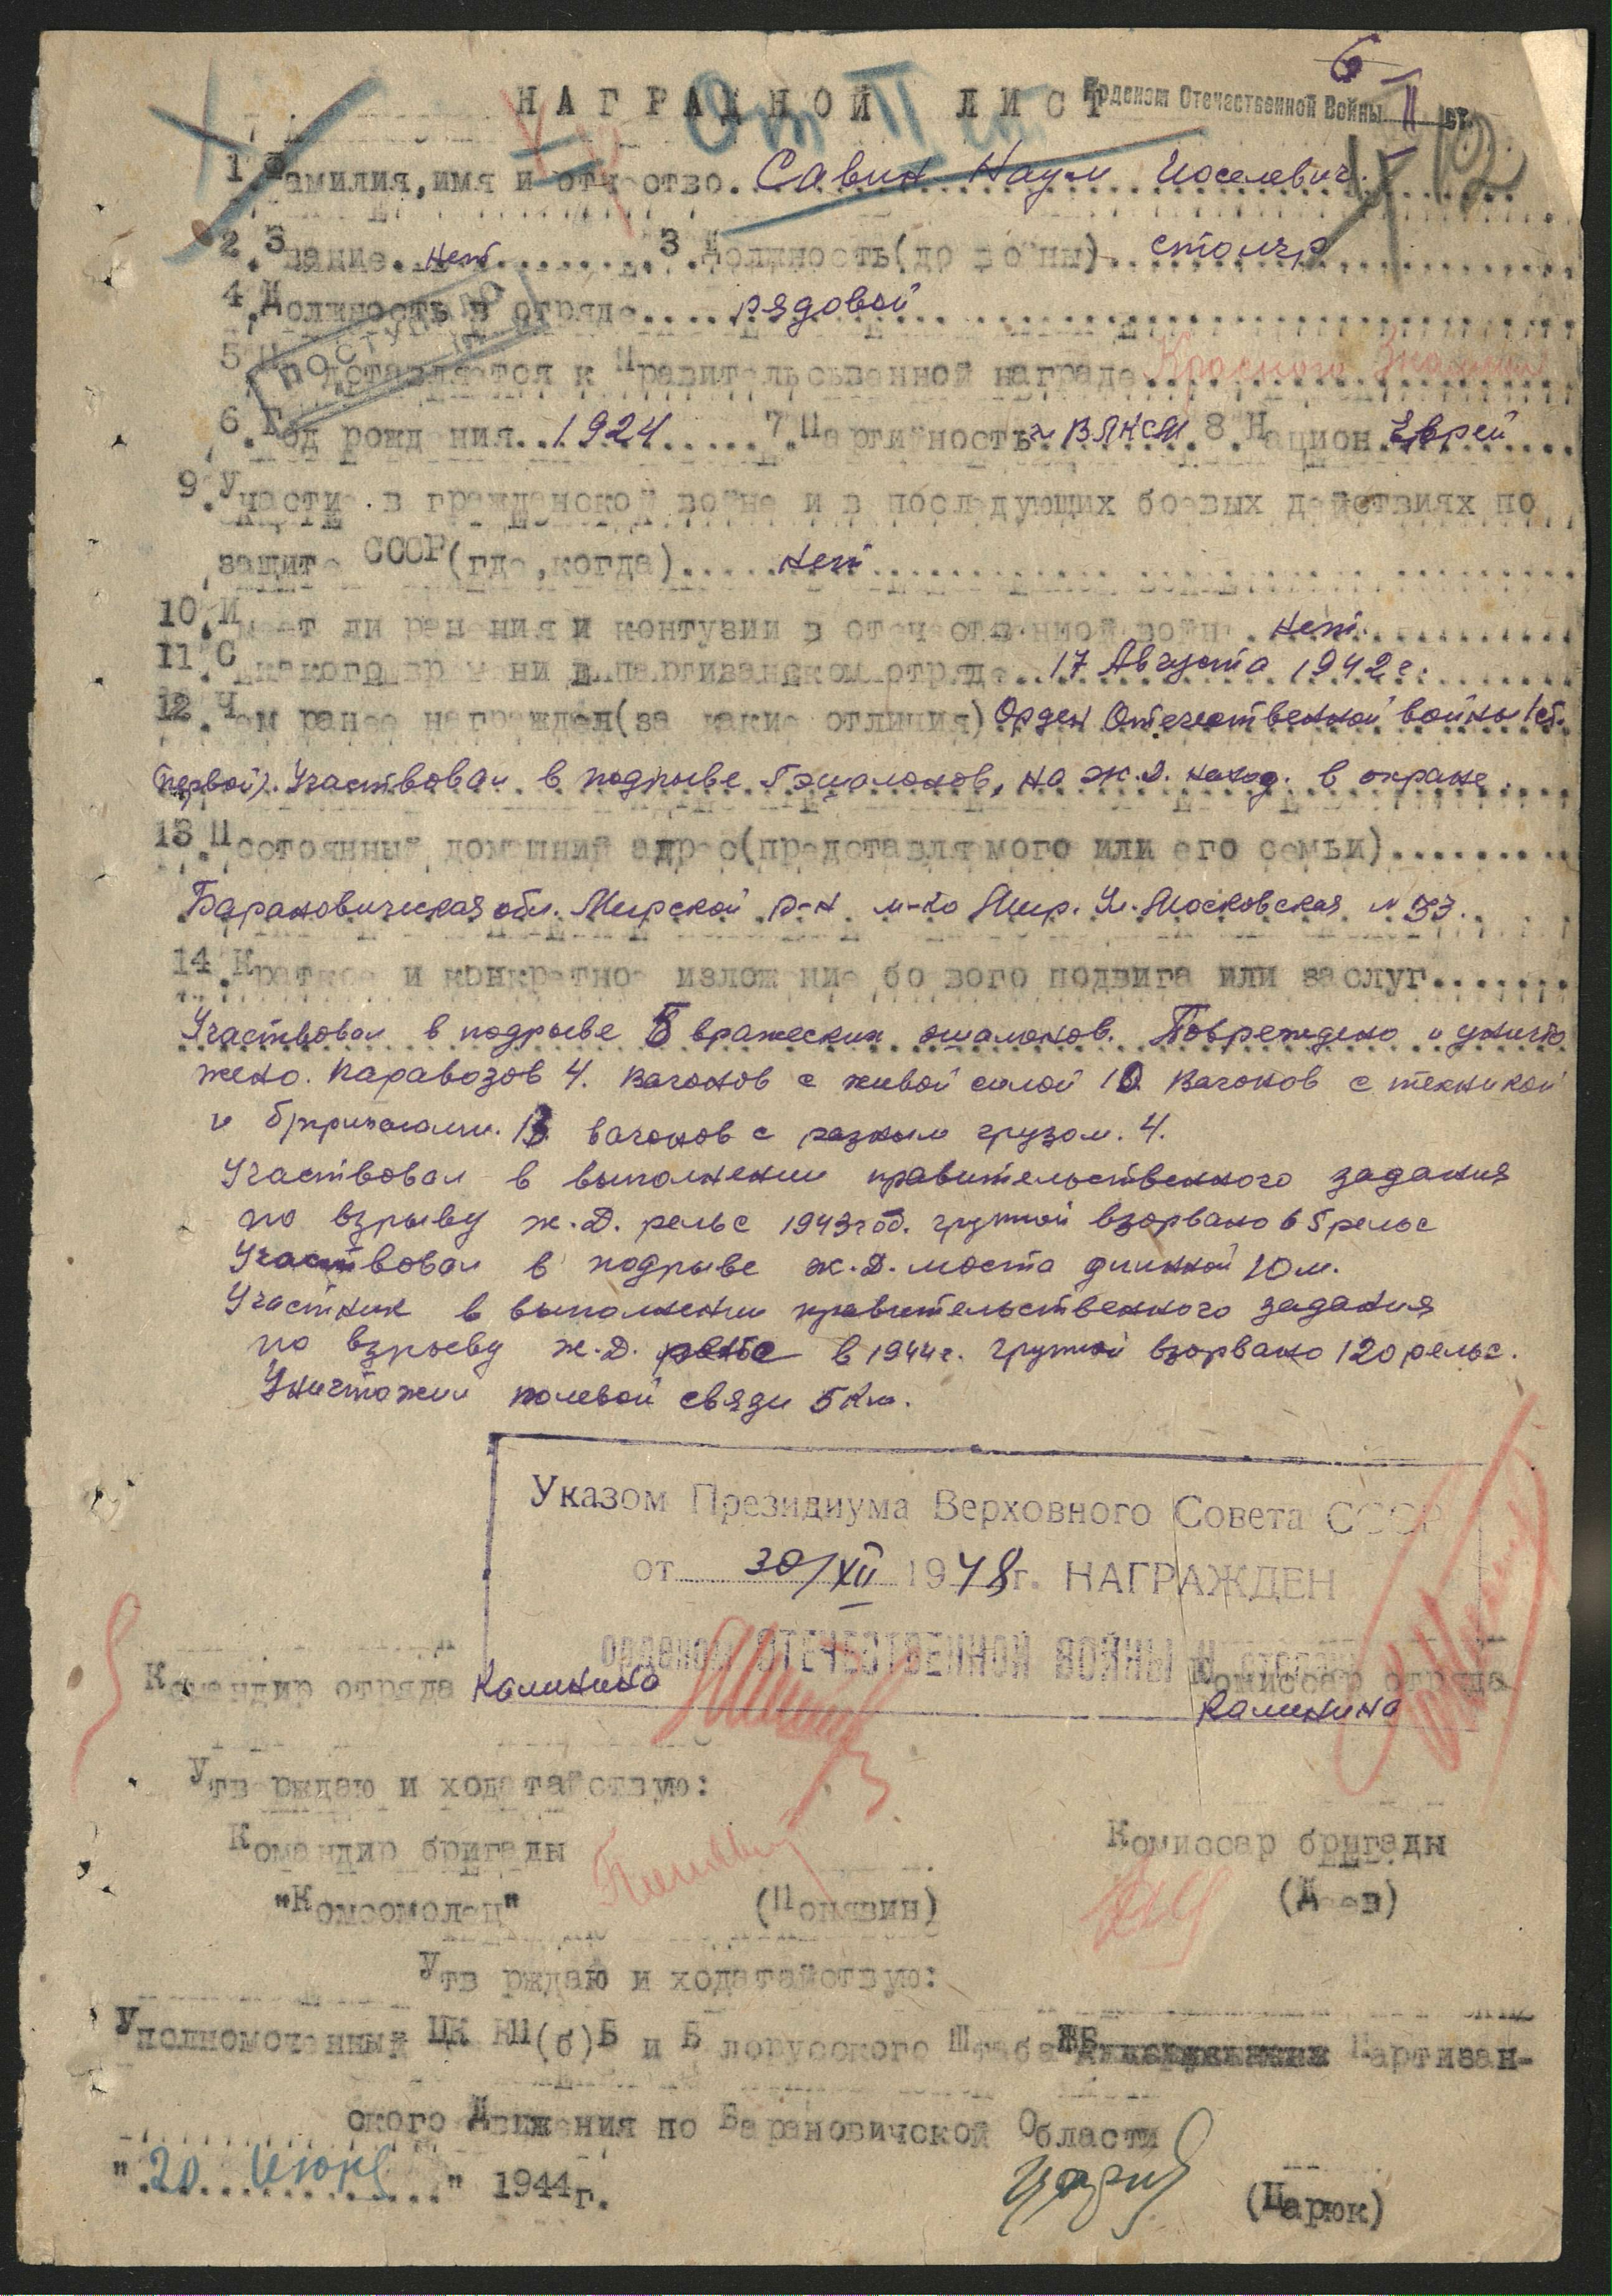 6
НАГРАДНОЙ ЛИСТ
От II ст
Орденом Отечественной Войны II ст.
12
1. Фамилия, имя и отчество. Савин Наум Иоселевич.
2. Звание. нет 3. Должность (до войны). столяр
4. Должность в отряде.... рядовой
ПОСТУПИЛО
5. Представляется к Правительсьвенной награде... Красного Знамени
6. Год рождения.. 1924 ..... 7. Партийность. ч ВЛКСМ. 8. Национ. Еврей
9. Участие в гражданской войне и в последующих боевых действиях по
защите СССР (где, когда)..... нет
10. Имеет ли ранения и контузии в отечественной войне. нет.
11. С какого времени в партизанском отряде.. 17 Августа 1942 г.
12. Чем ранее награжден (за какие отличия) Орден Отечественной войны 1 ст.
(первой). Участвовал в подрыве 5 эшалонов, на ж.д. наход. в охране.
13. Постоянный домашний адрес (представляемого или его семьи).........
Барановическая обл. Мирской р-н м-ко Мир. Ул. Московская N 33.
14. Краткое и конкретное изложение боевого подвига или заслуг.......
Участвовал в подрыве 5 вражеских эшалонов. Повреждено и уничто
жено. Паравозов 4. Вагонов с живой силой 10 Вагонов с техникой
и 13 вагонов с разным грузом. 4.
Участвовал в выполнении правительственного задания
по взрыву ж.Д. рельс 1943 год. групой взорвано 65 рельс
Участвовал в подрыве ж.Д. моста длинной 10 м.
Участник в выполнении правительственного задания
по взрыву ж.Д. рельс в 1944 г. групой взорвано 120 рельс.
Уничтожил полевой связи 5 Км.
Указом Президиума Верховного Совета СССР
от 30/XII 1948 г. НАГРАЖДЕН
орденом ОТЕЧЕСТВЕННОЙ ВОЙНЫ II степени
Командир отряда Калинина Комиссар отряда
Калинина
Утверждаю и ходатайствую:
Командир бригады Комиссар бригады
"Комсомолец" (Понявин) (Деев)
Утверждаю и ходатайствую:
Уполномоченный ЦК КП(б)Б и Белорусского Штаба Партизан-
ского Движения по Барановичской Области
"20 Июня" 1944 г. Царюк (Царюк)